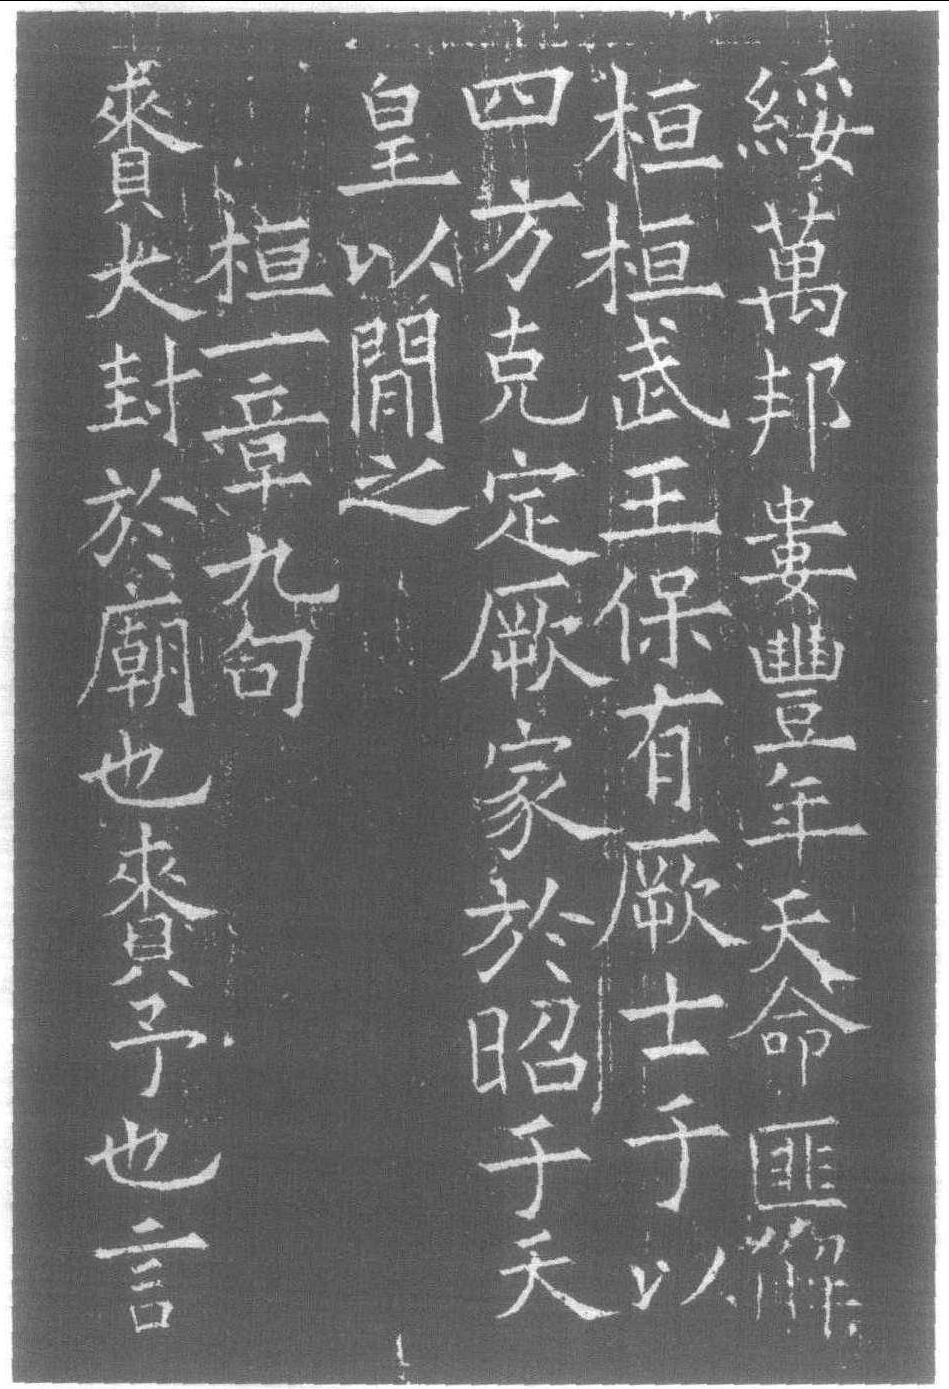 綏萬邦婁豐年天命匪解
桓桓武王保有厥士于以
四方克定厥家於昭于天
皇以閒之
桓一章九句
賚大封於廟也賚予也言